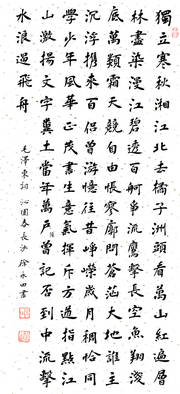 獨立寒秋湘江北去橘子洲頭看萬山紅遍層
林盡染漫江碧透百舸爭流鷹擊長空魚翔淺
底萬類霜天競自由悵寥廓問蒼茫大地誰主
沉浮攜來百侶曾游憶往昔崢嶸歲月稠恰同
學少年風華正茂書生意氣揮斥方遒指點江
山激揚文字糞土當年萬戶侯曾記否到中流擊
水浪遏飛舟
毛澤東詞 沁園春長沙 徐永田書